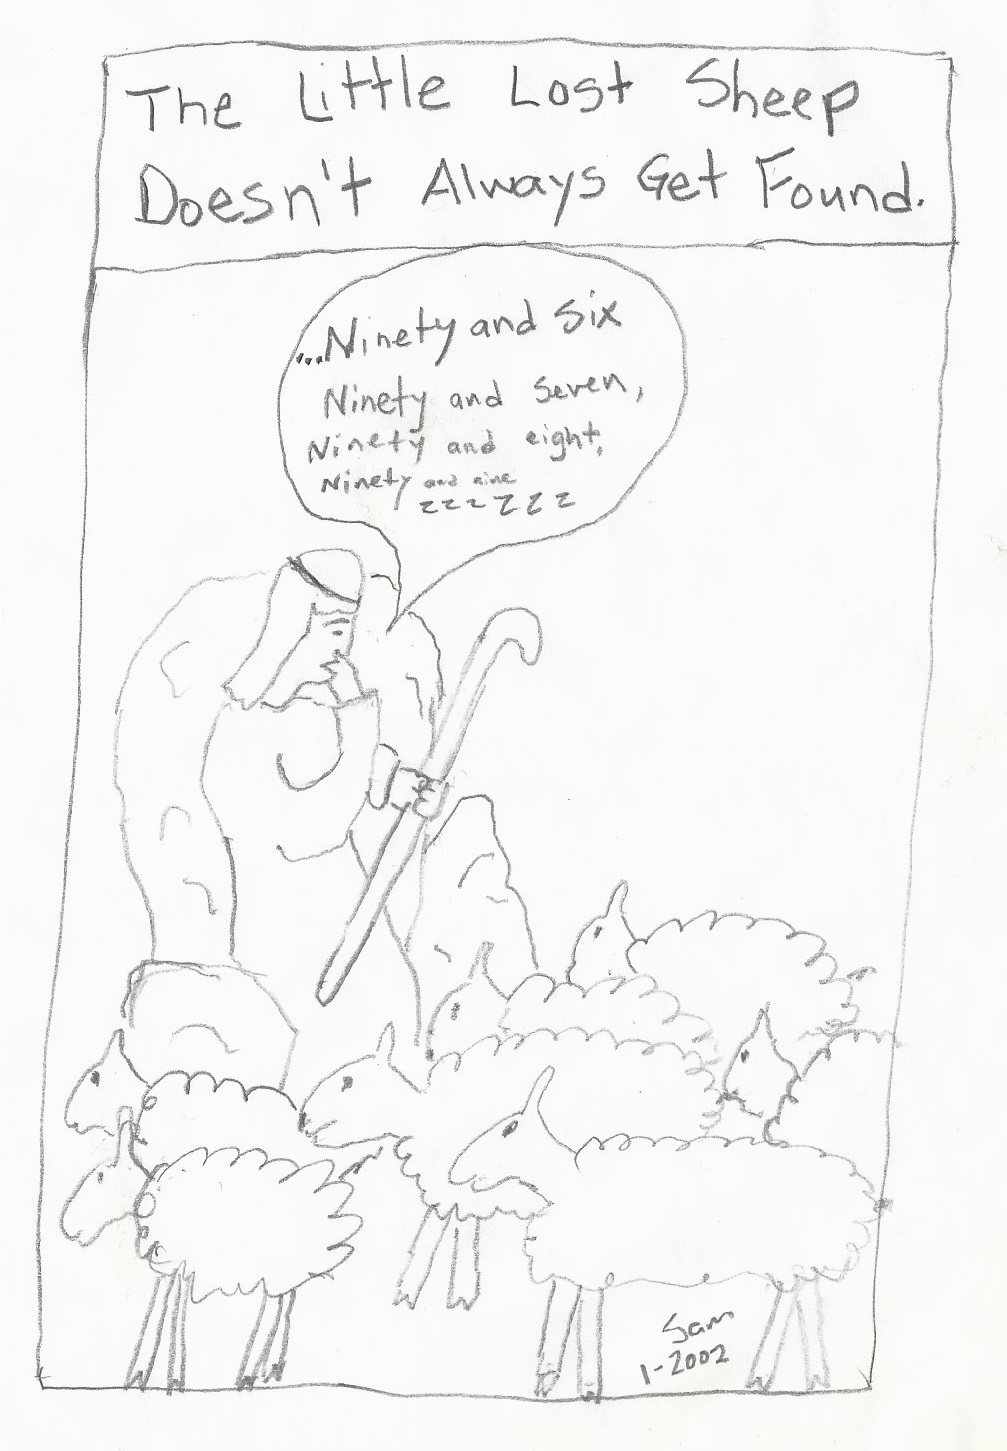 The Little Lost Sheep
Doesn't Always Get Found.
...Ninety and Six
Ninety and Seven,
Ninety and eight,
Ninety and nine
zzzzzz
Sam
1-2002